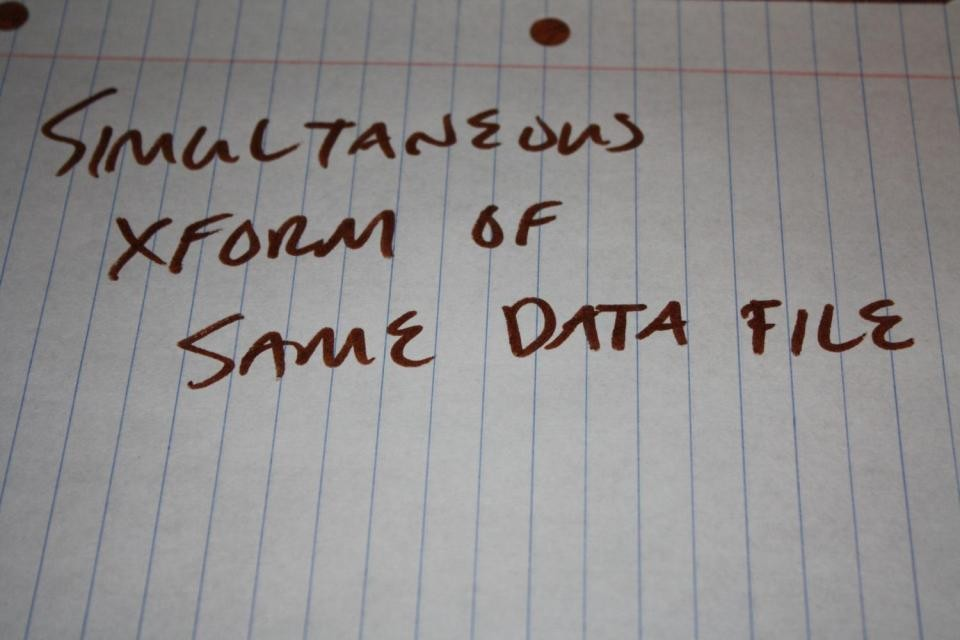 SIMULTANEOUS
XFORM OF
SAME DATA FILE